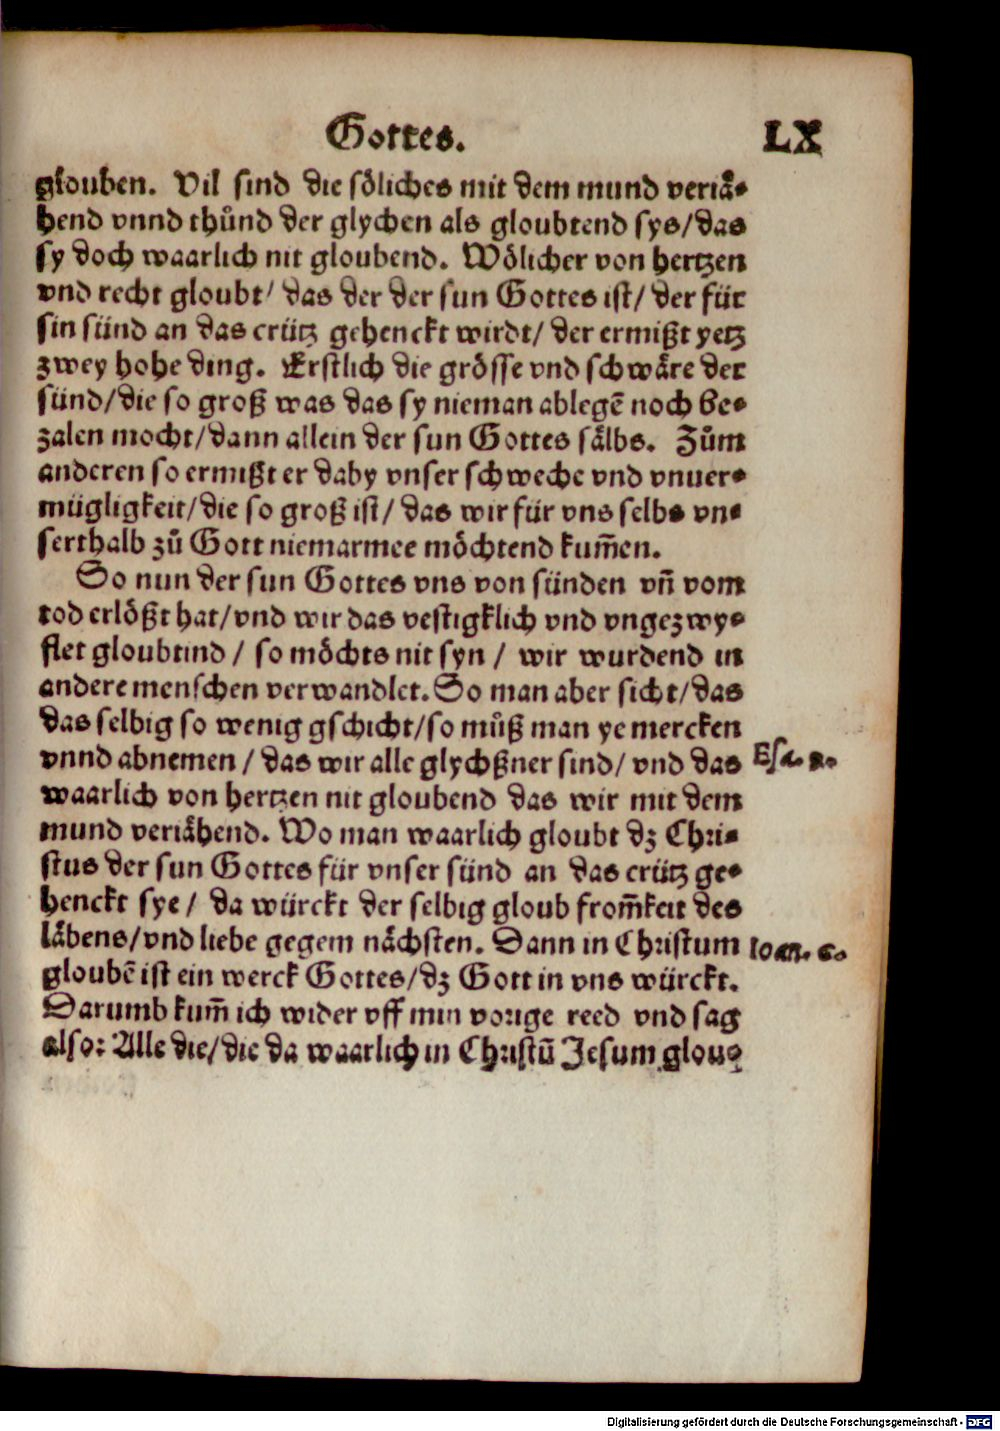 Gottes. LX
glouben. Vil sind die söliches mit dem mund veriä-
hend vnnd thůnd der glychen als gloubtend sys/das
sy doch waarlich nit gloubend. Wölicher von hertzen
vnd recht gloubt/ das der der sun Gottes ist/ der für
sin sünd an das crütz gehenckt wirdt/ der ermißt yetz
zwey hohe ding. Erstlich die grösse vnd schwäre der
sünd/die so groß was das sy nieman ablegē noch be-
zalen mocht/dann allein der sun Gottes sälbs. Zům
anderen so ermißt er daby vnser schweche vnd vnuer-
mügligkeit/die so groß ist/ das wir für vns selbs vn-
serthalb zů Gott niemarmee möchtend kum̃en.
So nun der sun Gottes vns von sünden vñ vom
tod erlößt hat/vnd wir das vestigklich vnd vngezwy-
flet gloubtind / so möchts nit syn / wir wurdend in
andere menschen verwandlet. So man aber sicht/das
das selbig so wenig gschicht/so můß man ye mercken
vnnd abnemen / das wir alle glychßner sind/ vnd das
Esa. 9.
waarlich von hertzen nit gloubend das wir mit dem
mund veriähend. Wo man waarlich gloubt dz Chri-
stus der sun Gottes für vnser sünd an das crütz ge-
henckt sye / da würckt der selbig gloub from̃keit des
läbens/vnd liebe gegem nächsten. Dann in Christum
Ioan. 6.
gloubē ist ein werck Gottes/dz Gott in vns würckt.
Darumb kum̃ ich wider vff min vorige reed vnd sag
also: Alle die/die da waarlich in Christū Jesum glou-
Digitalisierung gefördert durch die Deutsche Forschungsgemeinschaft - DFG